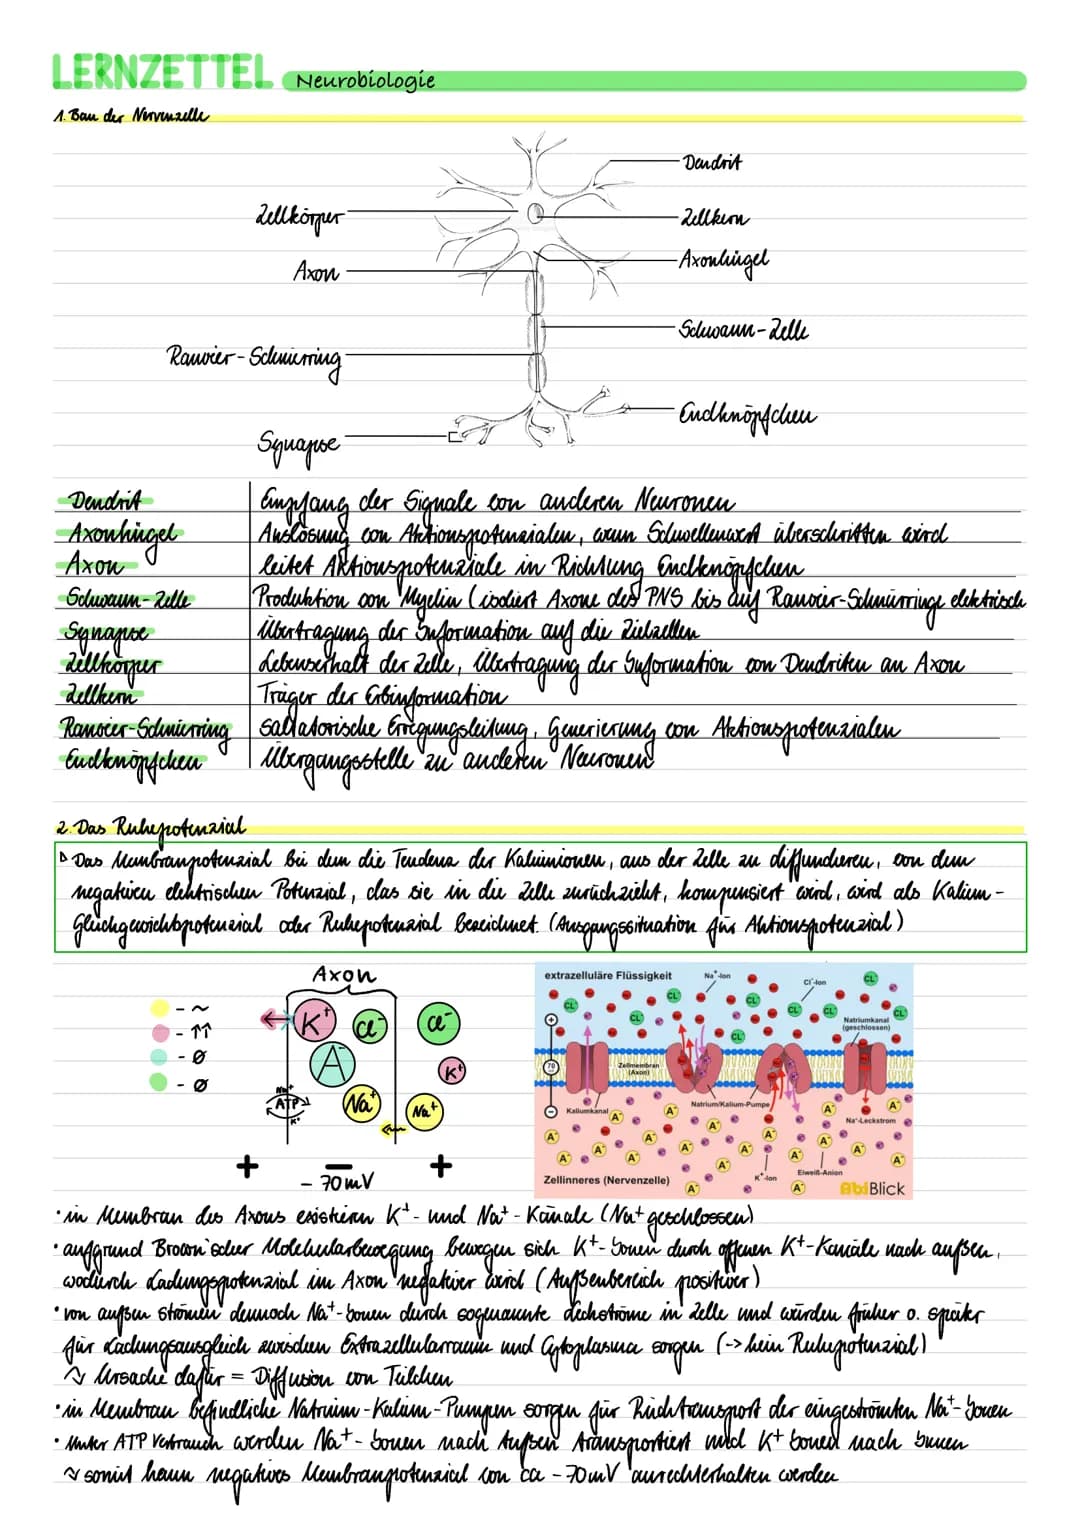 LERNZETTEL Neurobiologie
1. Bau der Nervenzelle
Dendrit
Zellkörper
Zellkern
Axonhügel
Axon
Schwann-Zelle
Ranvier-Schnürring
Endknöpfchen
Synapse
Dendrit Empfang der Signale von anderen Neuronen
Axonhügel Auslösung von Aktionspotenzialen, wenn Schwellenwert überschritten wird
Axon leitet Aktionspotenziale in Richtung Endknöpfchen
Schwann-Zelle Produktion von Myelin (isoliert Axone des PNS bis auf Ranvier-Schnürringe elektrisch
Synapse Übertragung der Information auf die Zielzellen
Zellkörper Lebenserhalt der Zelle, Übertragung der Information von Dendriten an Axon
Zellkern Träger der Erbinformation
Ranvier-Schnürring saltatorische Erregungsleitung, Generierung von Aktionspotenzialen
Endknöpfchen Übergangsstelle zu anderen Neuronen
2. Das Ruhepotenzial
Das Membranpotenzial bei dem die Tendenz der Kaliumionen, aus der Zelle zu diffundieren, von dem
negativen elektrischen Potenzial, das sie in die Zelle zurückzieht, kompensiert wird, wird als Kalium-
Gleichgewichtspotenzial oder Ruhepotenzial bezeichnet. (Ausgangssituation für Aktionspotenzial)
Axon
- ~
- ↑↑
- ø
- ø
K⁺ Cl⁻ Cl⁻
A⁻ K⁺
Na⁺ ATP K⁺ Na⁺ Na⁺
+ − +
- 70 mV
extrazelluläre Flüssigkeit
Na⁺-Ion
Cl⁻-Ion
CL⁻
Natriumkanal
(geschlossen)
+
70
−
Zellmembran
(Axon)
Kaliumkanal
Natrium/Kalium-Pumpe
Na⁺-Leckstrom
A⁻
K⁺-Ion
Eiweiß-Anion
Zellinneres (Nervenzelle)
AbiBlick
• in Membran des Axons existieren K⁺- und Na⁺-Kanäle (Na⁺ geschlossen)
• aufgrund Brown'scher Molekularbewegung bewegen sich K⁺-Ionen durch offenen K⁺-Kanäle nach außen,
wodurch Ladungspotenzial im Axon negativer wird (Außenbereich positiver)
• von außen strömen dennoch Na⁺-Ionen durch sogenannte Leckströme in Zelle und würden früher o. später
für Ladungsausgleich zwischen Extrazellularraum und Cytoplasma sorgen (-> kein Ruhepotenzial)
↳ Ursache dafür = Diffusion von Teilchen
• in Membran befindliche Natrium-Kalium-Pumpen sorgen für Rücktransport der eingeströmten Na⁺-Ionen
• Unter ATP Verbrauch werden Na⁺-Ionen nach Außen transportiert und K⁺ Ionen nach Innen
↳ somit kann negatives Membranpotenzial von ca -70 mV aufrechterhalten werden